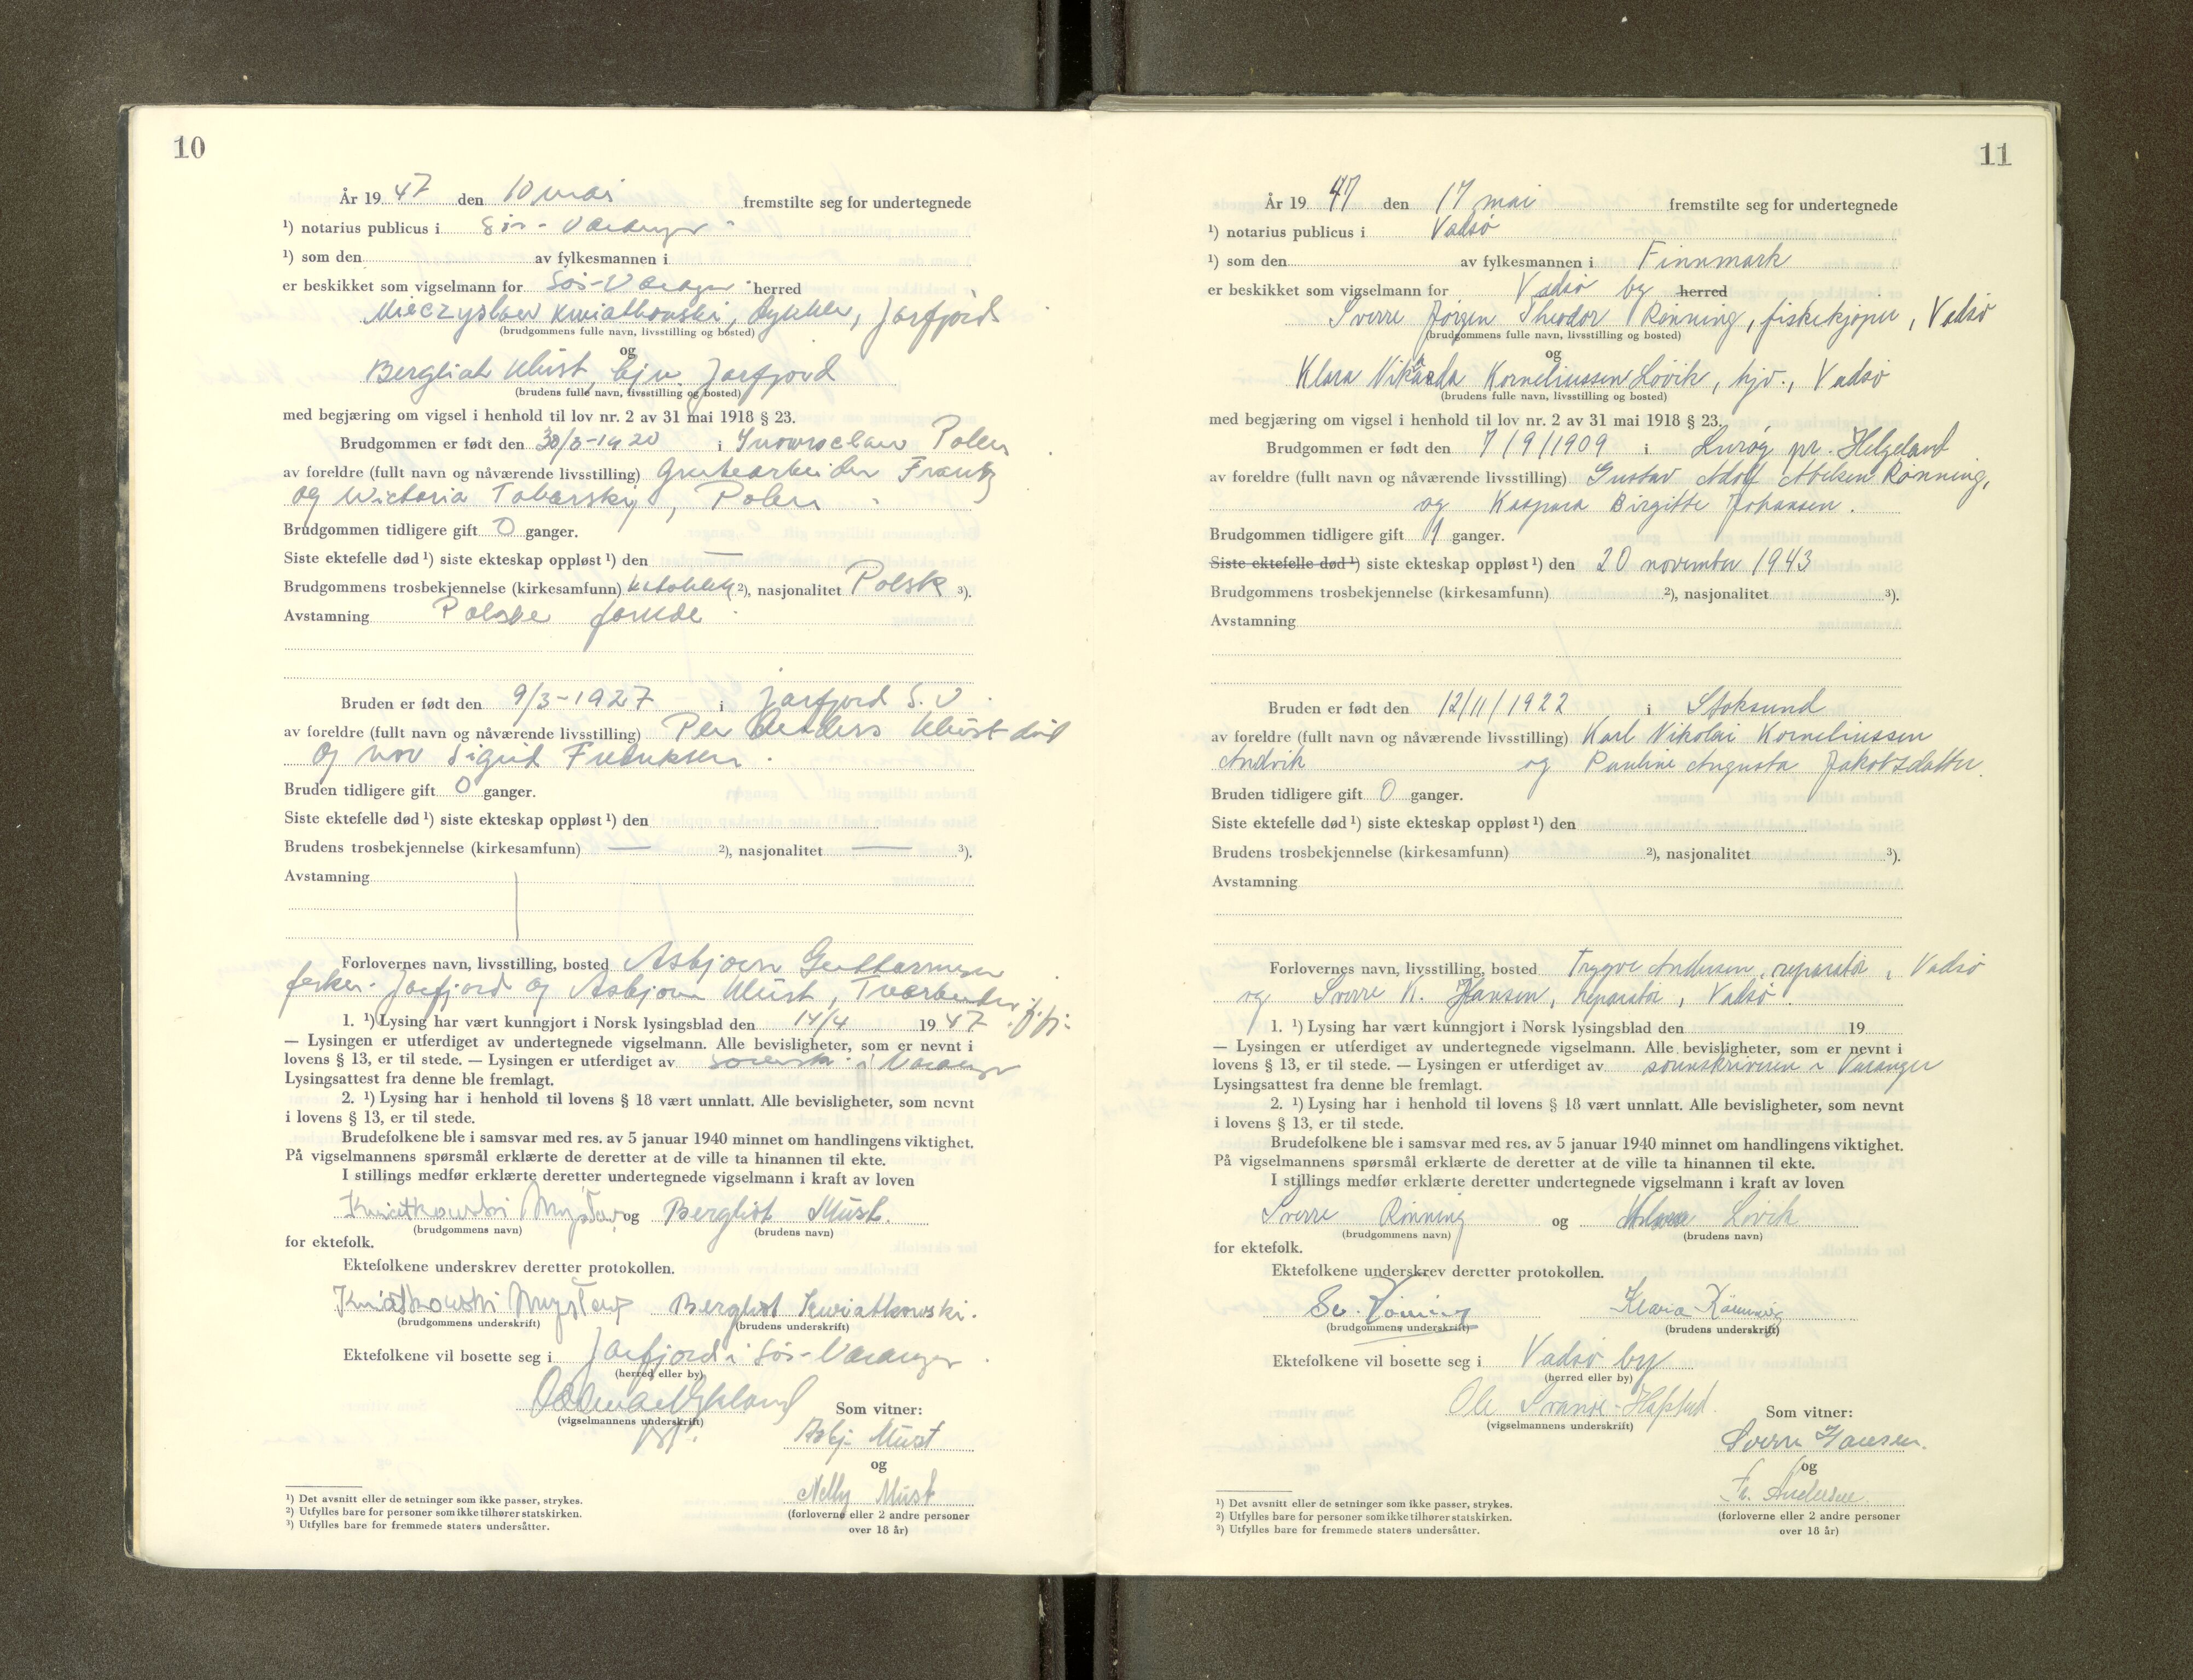 10
År 19 47 den 10 mai fremstilte seg for undertegnede
¹) notarius publicus i Sør-Varanger
¹) som den av fylkesmannen i
er beskikket som vigselmann for Sør-Varanger herred
Mieczyslaw Kwiatkowski, dykker, Jarfjord
(brudgommens fulle navn, livsstilling og bosted)
og
Bergliot Must, hjv. Jarfjord
(brudens fulle navn, livsstilling og bosted)
med begjæring om vigsel i henhold til lov nr. 2 av 31 mai 1918 § 23.
Brudgommen er født den 1920 i Inowroclaw Polen
av foreldre (fullt navn og nåværende livsstilling) Grubearbeider Frantz
og Wictoria Tobarsky, Polen
Brudgommen tidligere gift 0 ganger.
Siste ektefelle død ¹) siste ekteskap oppløst ¹) den —
Brudgommens trosbekjennelse (kirkesamfunn) katolikk ²), nasjonalitet Polsk ³).
Avstamning Polske foreldre
Bruden er født den 9/3-1927 i Jarfjord S.V.
av foreldre (fullt navn og nåværende livsstilling) Per Anders Must død
og Sigrid Fredriksen.
Bruden tidligere gift 0 ganger.
Siste ektefelle død ¹) siste ekteskap oppløst ¹) den
Brudens trosbekjennelse (kirkesamfunn) — ²), nasjonalitet — ³).
Avstamning
Forlovernes navn, livsstilling, bosted Asbjørn Guttormsen
fisker. Jarfjord og Asbjørn Must,
1. ¹) Lysing har vært kunngjort i Norsk lysingsblad den 14/4 19 47
— Lysingen er utferdiget av undertegnede vigselmann. Alle bevisligheter, som er nevnt i
lovens § 13, er til stede. — Lysingen er utferdiget av sorenskr. i Varanger
Lysingsattest fra denne ble fremlagt.
2. ¹) Lysing har i henhold til lovens § 18 vært unnlatt. Alle bevisligheter, som nevnt
i lovens § 13, er til stede.
Brudefolkene ble i samsvar med res. av 5 januar 1940 minnet om handlingens viktighet.
På vigselmannens spørsmål erklærte de deretter at de ville ta hinannen til ekte.
I stillings medfør erklærte deretter undertegnede vigselmann i kraft av loven
Kwiatkowski Mysław og Bergliot Must.
(brudgommens navn) (brudens navn)
for ektefolk.
Ektefolkene underskrev deretter protokollen.
Kwiatkowski Mysław Bergliot Kwiatkowski.
(brudgommens underskrift) (brudens underskrift)
Ektefolkene vil bosette seg i Jarfjord i Sør-Varanger
(herred eller by)
(vigselmannens underskrift)
Som vitner:
Asbj. Must
og
Nelly Must
(forloverne eller 2 andre personer
over 18 år)
¹) Det avsnitt eller de setninger som ikke passer, strykes.
²) Utfylles bare for personer som ikke tilhører statskirken.
³) Utfylles bare for fremmede staters undersåtter.
11
År 19 47 den 17 mai fremstilte seg for undertegnede
¹) notarius publicus i Vadsø
¹) som den av fylkesmannen i Finnmark
er beskikket som vigselmann for Vadsø by herred
Sverre Jørgen Theodor Rønning, fiskekjøper, Vadsø
(brudgommens fulle navn, livsstilling og bosted)
og
Klara Korneliussen Løvik, hjv., Vadsø
(brudens fulle navn, livsstilling og bosted)
med begjæring om vigsel i henhold til lov nr. 2 av 31 mai 1918 § 23.
Brudgommen er født den 7/9/1909 i Lurøy pr. Helgeland
av foreldre (fullt navn og nåværende livsstilling) Gustav Adolf Abelsen Rønning,
og Kaspara Birgitte Johansen.
Brudgommen tidligere gift 1 ganger.
Siste ektefelle død ¹) siste ekteskap oppløst ¹) den 20 november 1943
Brudgommens trosbekjennelse (kirkesamfunn) ²), nasjonalitet ³).
Avstamning
Bruden er født den 12/11/1922 i Stoksund
av foreldre (fullt navn og nåværende livsstilling) Karl Nikolai Korneliussen
Andvik og Pauline Augusta Jakobsdatter.
Bruden tidligere gift 0 ganger.
Siste ektefelle død ¹) siste ekteskap oppløst ¹) den
Brudens trosbekjennelse (kirkesamfunn) ²), nasjonalitet ³).
Avstamning
Forlovernes navn, livsstilling, bosted Trygve Andersen, reparatør, Vadsø
og Sverre K. Hansen, reparatør, Vadsø.
1. ¹) Lysing har vært kunngjort i Norsk lysingsblad den 19
— Lysingen er utferdiget av undertegnede vigselmann. Alle bevisligheter, som er nevnt i
lovens § 13, er til stede. — Lysingen er utferdiget av sorenskriveren i Varanger
Lysingsattest fra denne ble fremlagt.
2. ¹) Lysing har i henhold til lovens § 18 vært unnlatt. Alle bevisligheter, som nevnt
i lovens § 13, er til stede.
Brudefolkene ble i samsvar med res. av 5 januar 1940 minnet om handlingens viktighet.
På vigselmannens spørsmål erklærte de deretter at de ville ta hinannen til ekte.
I stillings medfør erklærte deretter undertegnede vigselmann i kraft av loven
Sverre Rønning og Klara Løvik
(brudgommens navn) (brudens navn)
for ektefolk.
Ektefolkene underskrev deretter protokollen.
Sv. Rönning Klara Rönning
(brudgommens underskrift) (brudens underskrift)
Ektefolkene vil bosette seg i Vadsø by
(herred eller by)
Ole Svanøe-Hafstad
(vigselmannens underskrift)
Som vitner:
Sverre Hansen.
og
Tr. Andersen
(forloverne eller 2 andre personer
over 18 år)
¹) Det avsnitt eller de setninger som ikke passer, strykes.
²) Utfylles bare for personer som ikke tilhører statskirken.
³) Utfylles bare for fremmede staters undersåtter.